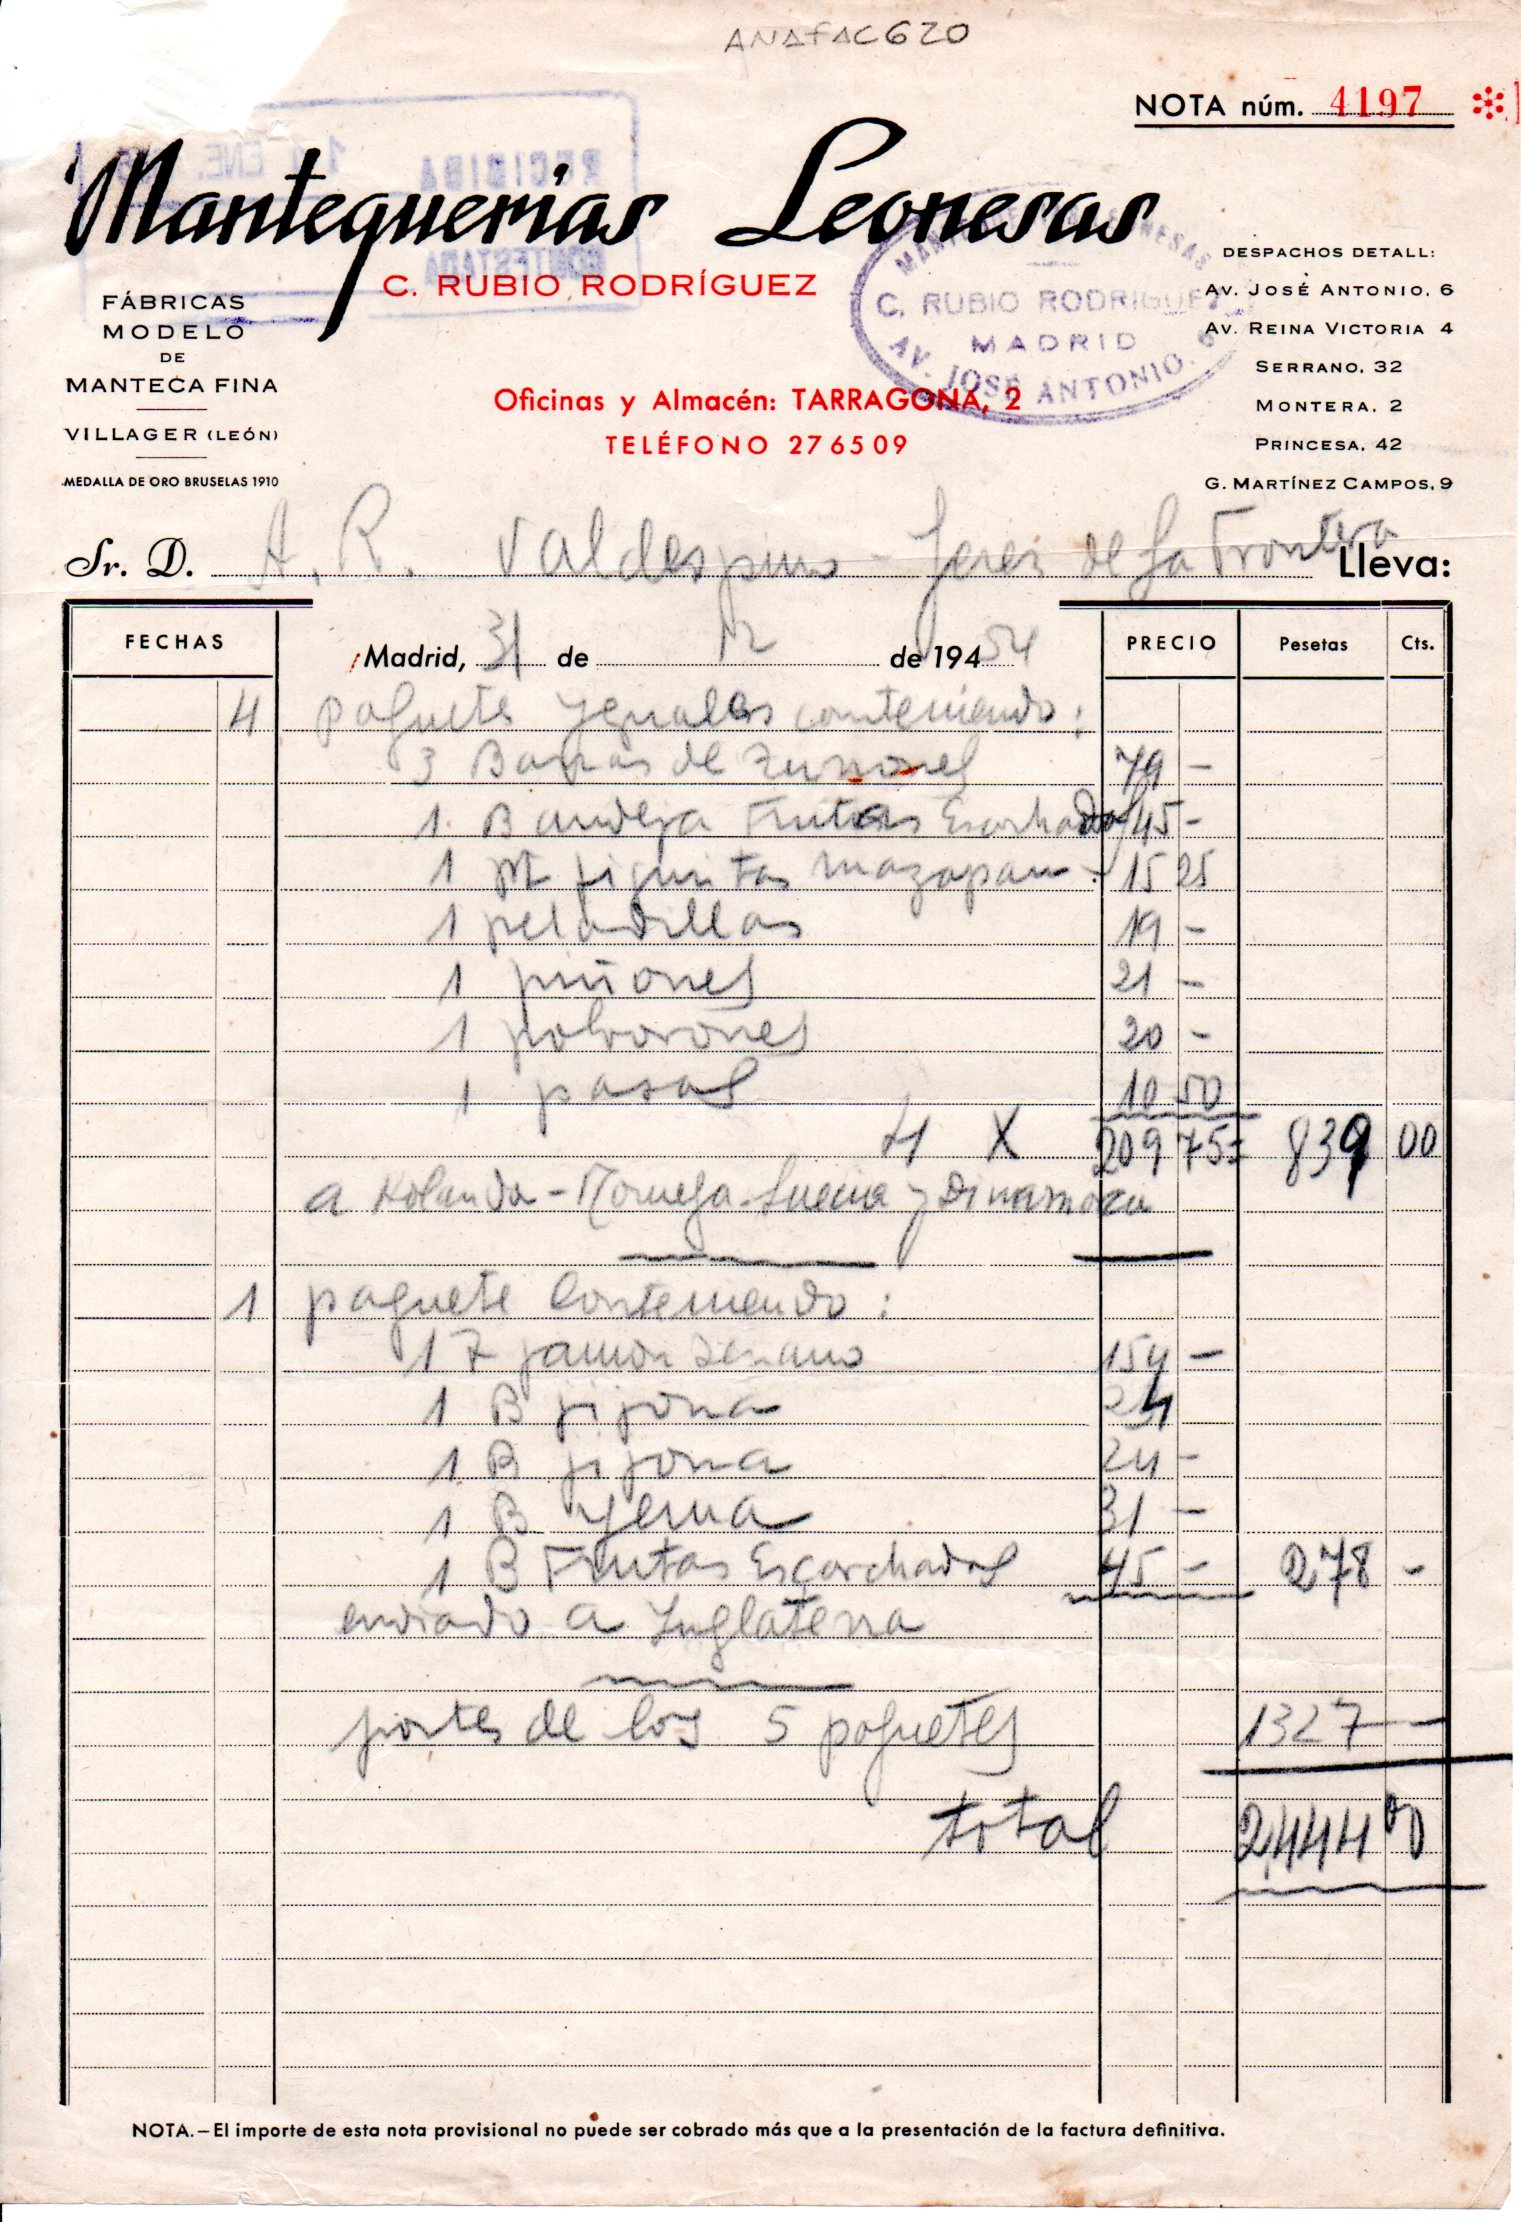 ANAFAC620
NOTA núm. 4197
Mantequerias Leonesas
C. RUBIO RODRÍGUEZ
RECIBIDA
11 ENE.
CONTESTADA
C. RUBIO RODRIGUEZ
MADRID
AV. JOSE ANTONIO. 6
FÁBRICAS
MODELO
DE
MANTECA FINA
VILLAGER (LEÓN)
MEDALLA DE ORO BRUSELAS 1910
Oficinas y Almacén: TARRAGONA, 2
TELÉFONO 27 65 09
DESPACHOS DETALL:
AV. JOSÉ ANTONIO, 6
AV. REINA VICTORIA 4
SERRANO, 32
MONTERA, 2
PRINCESA, 42
G. MARTÍNEZ CAMPOS, 9
Sr. D. A. R. Valdespino - Jerez de la Frontera Lleva:
FECHAS
Madrid, 31 de 12 de 194 54
PRECIO Pesetas Cts.
4 paquetes yguales conteniendo:
3 Barras de 79 -
1 Bandeja Frutas Escarchadas 45 -
1 figuritas mazapan - 15 25
1 peladillas 19 -
1 piñones 21 -
1 polvorones 20 -
1 pasas 10 50
4 X 209 75 = 839 00
a Holanda - Noruega - Suecia y Dinamarca
1 paquete conteniendo:
1 jamon serrano 154 -
1 B jijona 24
1 B jijona 24 -
1 B yema 31 -
1 B Frutas Escarchadas 45 - 278 -
enviado a Inglaterra
portes de los 5 paquetes 1327 -
total 2,444 00
NOTA.-El importe de esta nota provisional no puede ser cobrado más que a la presentación de la factura definitiva.